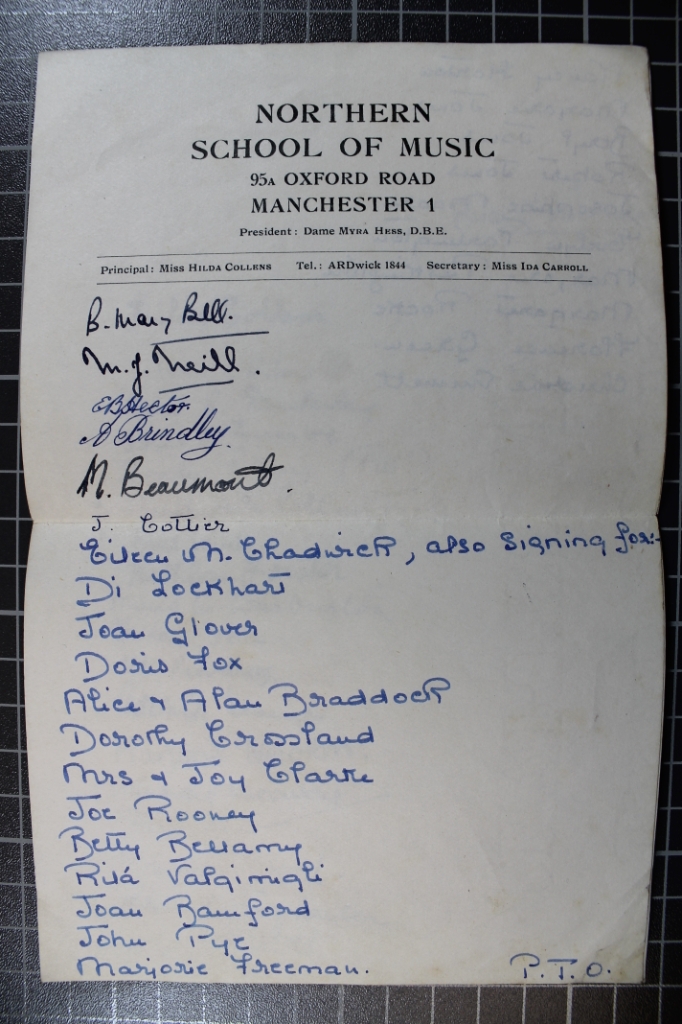 NORTHERN
SCHOOL OF MUSIC
95A OXFORD ROAD
MANCHESTER 1
President: Dame MYRA HESS, D.B.E.
Principal: Miss HILDA COLLENS Tel.: ARDwick 1844 Secretary: Miss IDA CARROLL
B. Mary Bell.
M. J. Neill.
E B Hector.
A Brindley.
M. Beaumont.
J. Cottier
Eileen M. Chadwick, also signing for:-
Di Lockhart
Joan Glover
Doris Fox
Alice & Alan Braddock
Dorothy Crossland
Mrs & Joy Clarke
Joe Rooney
Betty Bellamy
Rita Valgimigli
Joan Bamford
John Pye
Marjorie Freeman. P.T.O.